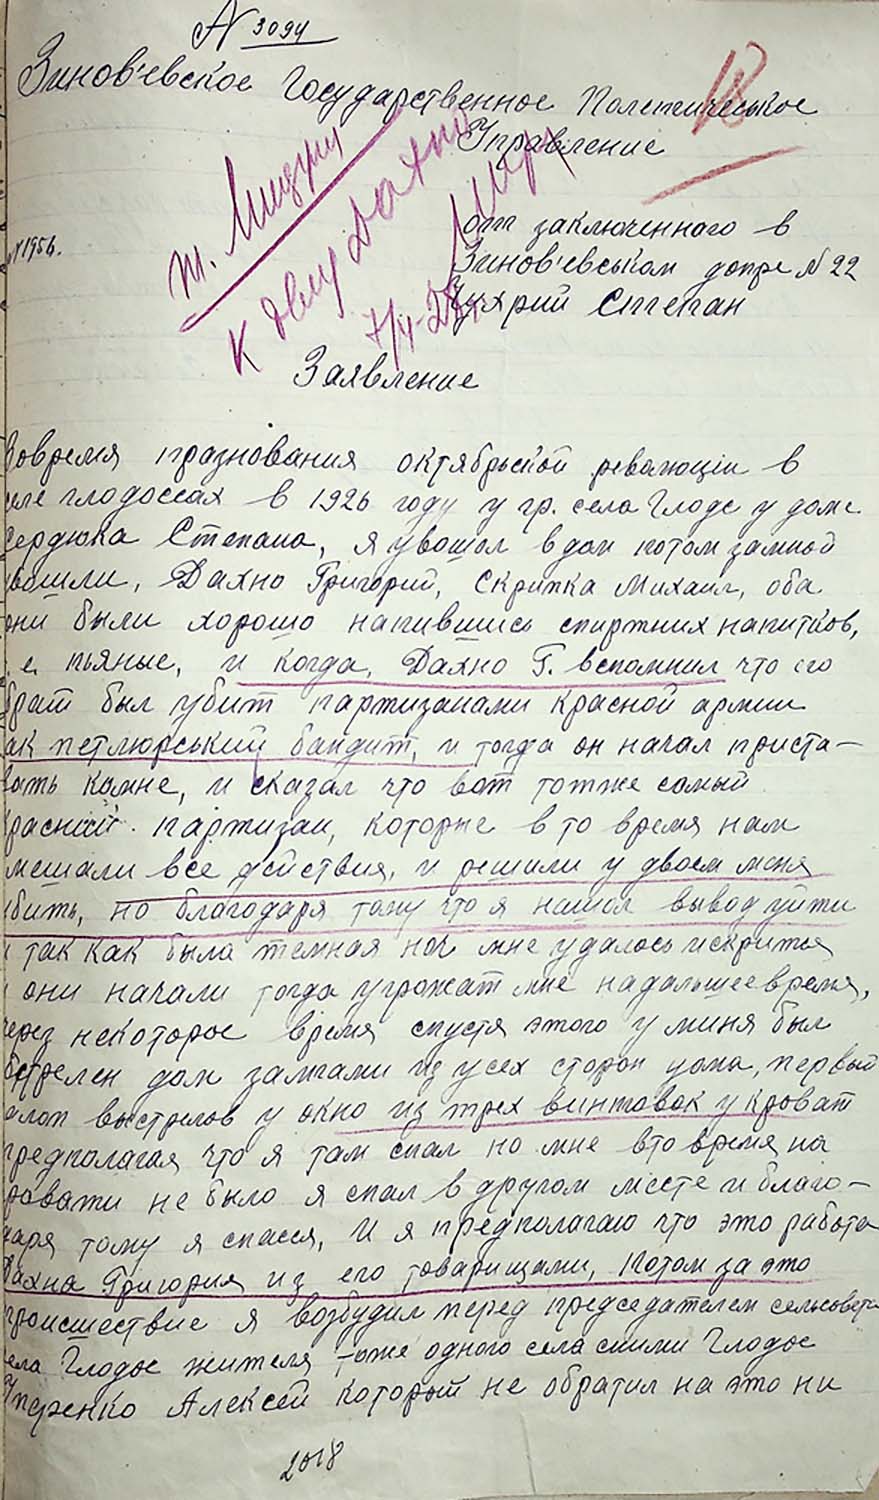 N 3094
Зинов'евское Государственное Полетическое
Управление
18
т.
к делу Дахно
7/4-28
N 1954.
от заключенного в
Зинов'евськом допре N 22
Цухрий Степан
Заявление
Вовремя празнования октябрьской революціи в
селе глодоссах в 1926 году у гр. села Глодс у доме
Сердюка Степана, я увошол в дом потом замной
увошли, Дахно Григорий, Скрипка Михаил, оба
они были хорошо напившись спиртних напитков,
т.е. пьяные, и когда, Дахно Г. вспомнил что его
брат был убит партизанами красной армии
как петлюрський бандит, и тогда он начал приста-
вать комне, и сказал что вот тотже самый
красний партизан, которые в то время нам
мешали все действия, и решили у двоем меня
убить, но благодаря тому что я нашол вывод уйти
и так как была темная ноч мне удалось искритья
и они начали тогда угрожат мне надальшее время,
через некоторое время спустя этого у миня был
обстрелен дом залпами из усех сторон дома, первый
залп выстрелов у окно из трех винтовок у кроват
предполагая что я там спал но мне вто время на
кровати не было я спал в другом месте и благо-
даря тому я спасся, И я предполагаю что это работа
Дахна Григория из его товарищами, Потом за это
происшествие я возбудил перед председателем сельсовета
села Глодос жителя тоже одного села сними Глодос
Алексей который не обратил на это ни
2018